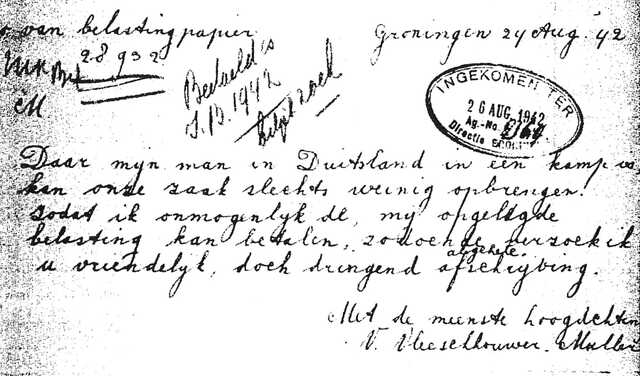 van belastingpapier
28932
Groningen 24 Aug. '42
I.B. 1942
INGEKOMEN TER
26 AUG. 1942
Ag.-No.
Directie
Daar mijn man in Duitsland in een kamp is,
kan onze zaak slechts weinig opbrengen.
zodat ik onmogenlijk de, mij opgelegde
belasting kan betalen, zodoende verzoek ik
u vriendelijk, doch dringend algehele afschrijving.
Met de meeste hoogachten
V. Vleeschhouwer. Muller